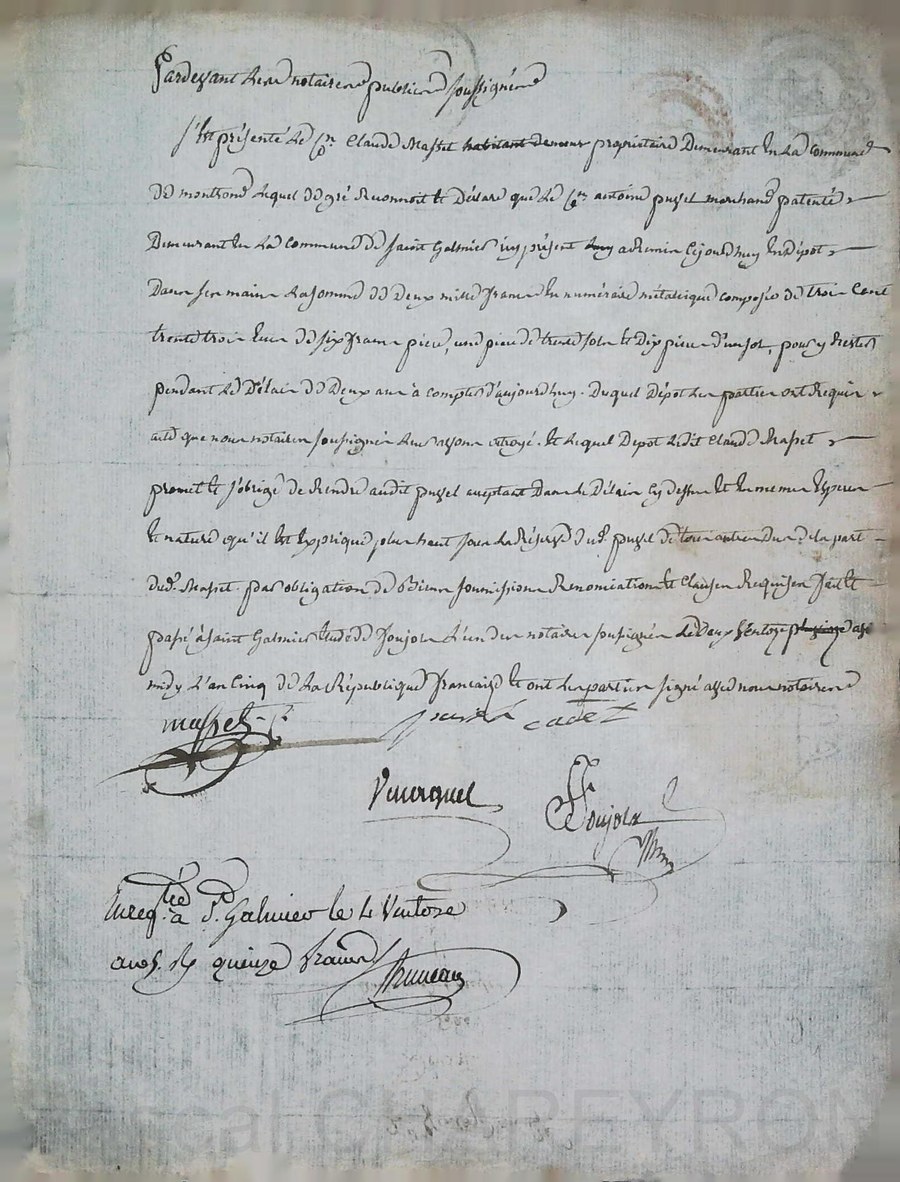 Pardevant les notaires publics soussignés
s'est présenté le Cen Claude Masset habitant demeur propriétaire Demeurant en la Commune
de montrond lequel de gré Reconnoit et Déclare que le Cen antoine puzel marchand patenté
Demeurant en la Commune de Saint Galmier icy présent luy a Remis Cejourd'huy en Dépot
Dans ses mains la somme de Deux mille francs en numéraire métallique composée de trois Cent
trente trois écus de six francs pieces, une piece de trente sols et Dix pieces d'un sol, pour y Rester
pendant le Délais de Deux ans à compter d'aujourd'huy. Duquel Dépot les parties ont Requis
acte que nous notaires soussignés leur avons octroyé. et lequel Depot ledit Claude Masset
promet et s'oblige de Rendre audit puzel acceptant Dans le Délais cy dessus et en memes Especes
et nature qu'il est Expliqué plus haut sous la Réserve dud. puzel de tous autres dus de la part
dud. Masset. par obligation de Biens soumissions Renonciations et Clauses Requises fait et
passé à Saint Galmier étude de Foujols l'un des notaires soussignés le Deux Ventose apr
midy l'an Cinq de la République francaise et ont les parties signé avec nous notaires
masset
cadet
Foujols
Enregtré a St. Galmier le 4 Ventose
an 5. Rs quinze francs